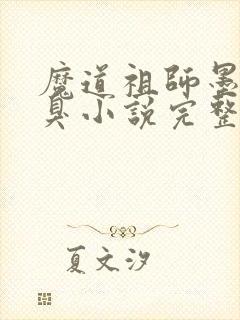 魔道祖師墨
臭小說完整
夏文汐